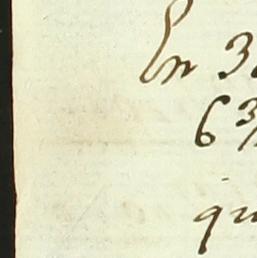 En 3
6 3/
qu